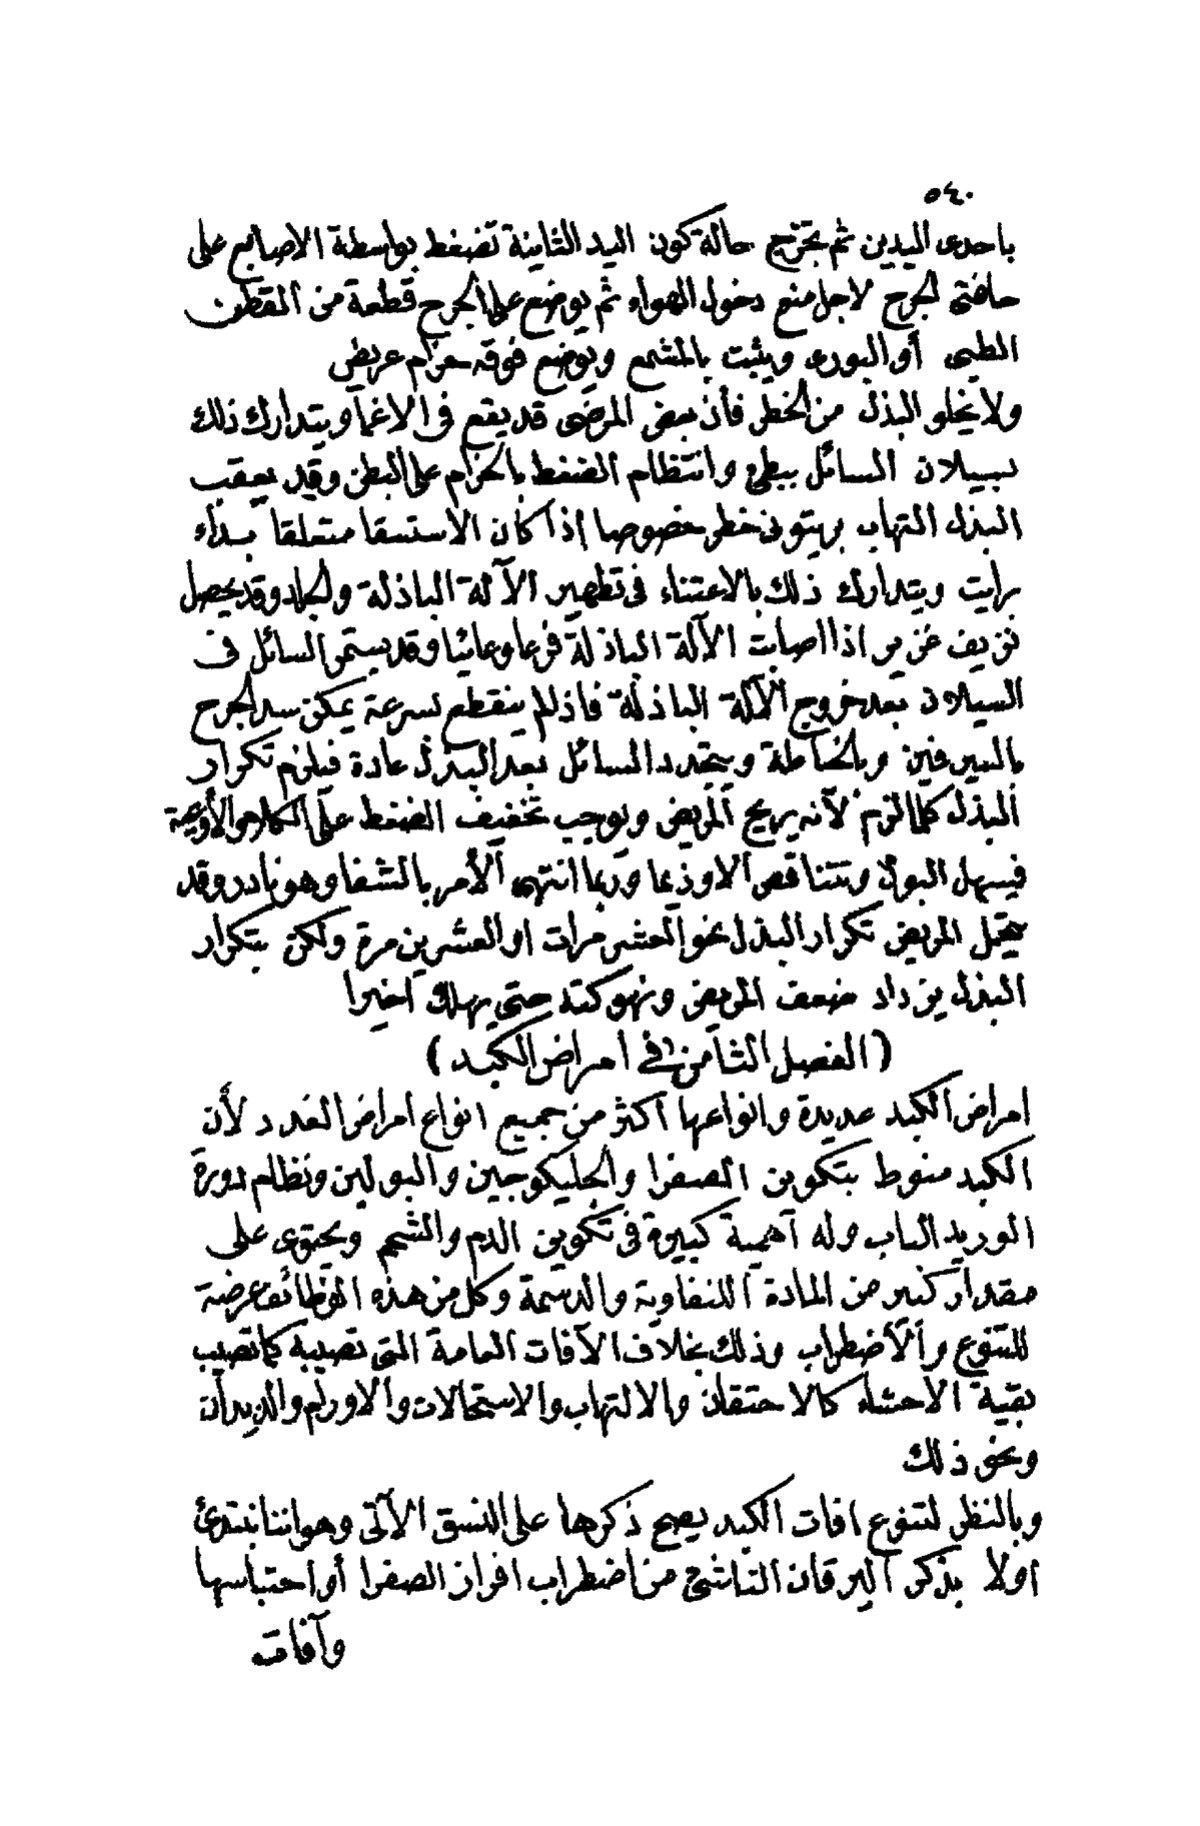 ٥٤٠
باحدى اليدين ثم تخرج حالة كون اليد الثانية تضغط بواسطة الاصابع على
حافتى الجرح لاجل منع دخول الهواء ثم يوضع على الجرح قطعة من القطن
الطبى أو البورى ويثبت بالمشمع ويوضع فوقه حزام عريض
ولا يخلو البذل من الخطر فأن بعض المرضى قد يقع فى الاغما ويتدارك ذلك
بسيلان السائل ببطئ وانتظام الضغط بالحزام على البطن وقد يعقب
البذل التهاب بريتونى خطر خصوصا اذا كان الاستسقا متعلقا بداء
برايت ويتدارك ذلك بالاعتناء فى تطهير الآلة الباذلة والجلد وقد يحصل
نزيف غزير اذا اصابت الآلة الباذلة فرعا وعائيا وقد يستمر السائل فى
السيلان بعد خروج الآلة الباذلة فاذلم ينقطع بسرعة يمكن سد الجرح
بالسيرفين وبالخياطة ويتجدد السائل بعد البذل عادة فيلزم تكرار
البذل كلما لزم لآنه يريح المريض ويوجب تخفيف الضغط على الكلا والأوعية
فيسهل البول وتتناقص الاوذيما وربما انتهى الأمر بالشفا وهو نادر وقد
يتحمل المريض تكرار البذل نحو العشر مرات او العشرين مرة ولكن بتكرار
البذل يزداد ضعف المريض ونهوكته حتى يهلك اخيرا
(الفصل الثامن فى أمراض الكبد)
امراض الكبد عديدة وانواعها اكثر من جميع انواع امراض الغدد لأن
الكبد منوط بتكوين الصفرا والجليكوجين والبولين ونظام دورة
الوريد الباب وله آهمية كبيرة فى تكوين الدم والشحم ويحتوى على
مقدار كبير من المادة اللنفاوية والدسمة وكل من هذه الوظائف عرضة
للتنوع والأضطراب وذلك بخلاف الآفات العامة التى تصيبه كما تصيب
بقية الأحشاء كالاحتقان والالتهاب والاستحالات والاورام والديدان
ونحو ذلك
وبالنظر لتنوع افات الكبد يصح ذكرها على النسق الآتى وهو اننا نبتدئ
اولا بذكر اليرقان الناشئ من اضطراب افراز الصفرا أو احتباسها
وآفات